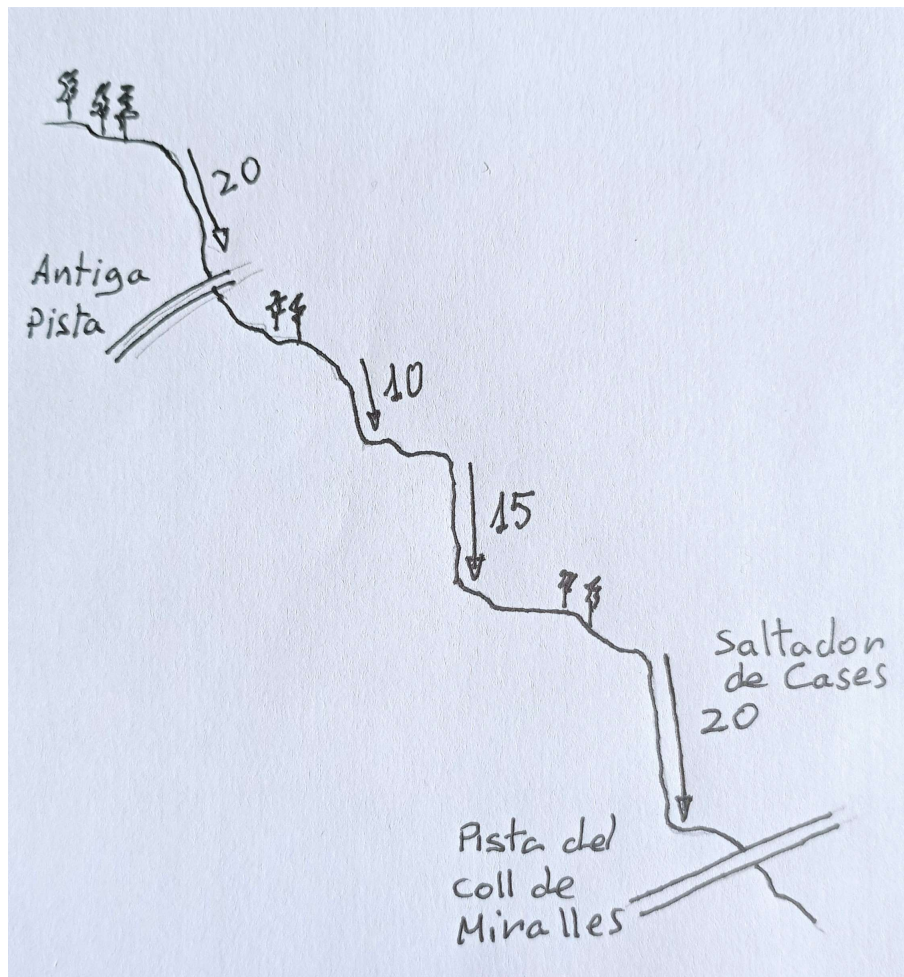 20
Antiga
Pista
10
15
Saltador
de Cases
20
Pista del
coll de
Miralles